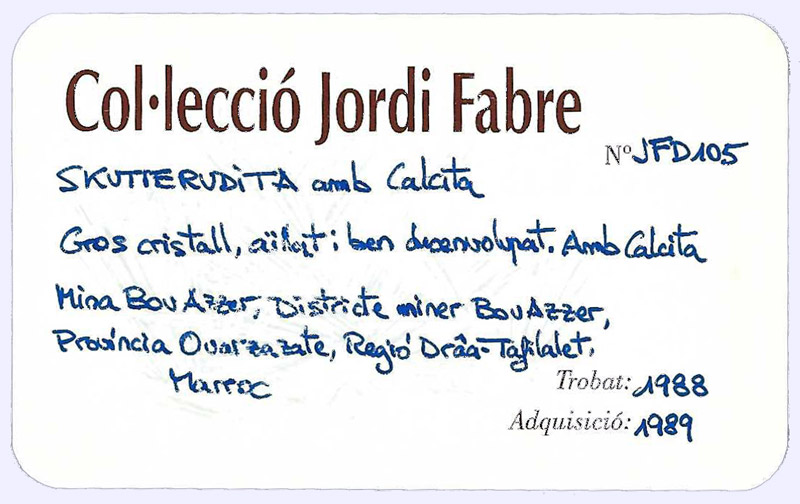 Col·lecció Jordi Fabre
Nº JFD105
SKUTTERUDITA amb Calcita
Gros cristall, aïllat i ben desenvolupat. Amb Calcita
Mina Bou Azzer, Districte miner Bou Azzer,
Província Ouarzazate, Regió Drâa-Tafilalet,
Marroc
Trobat: 1988
Adquisició: 1989